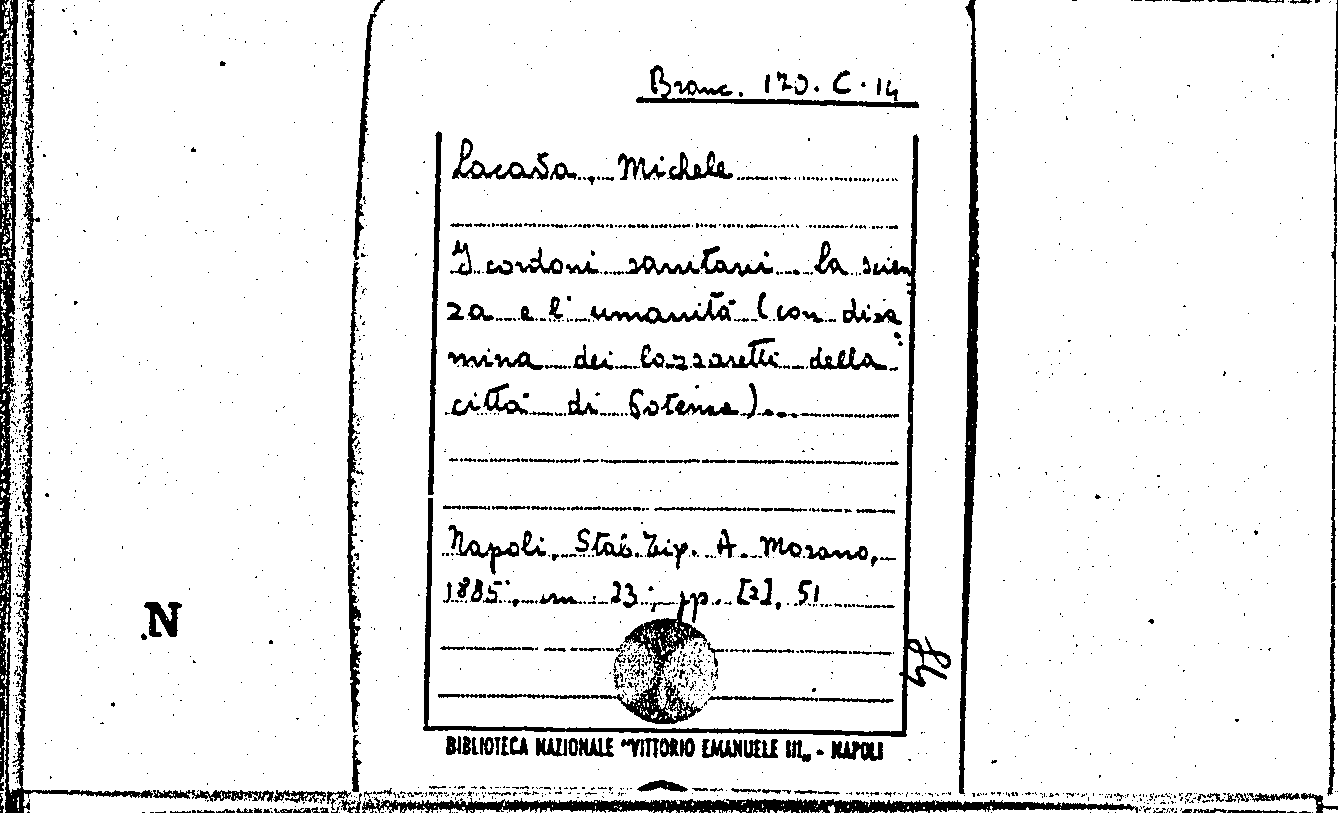 Branc. 170. C. 14
Lacava, Michele
I cordoni sanitari. La scien
za e l' umanità (con disa
mina dei lazzaretti della
città di Potenza)...
Napoli, Stab. Tip. A. Morano,
1885, cm. 23; pp. [2], 51
N
BIBLIOTECA NAZIONALE "VITTORIO EMANUELE III„ - NAPOLI